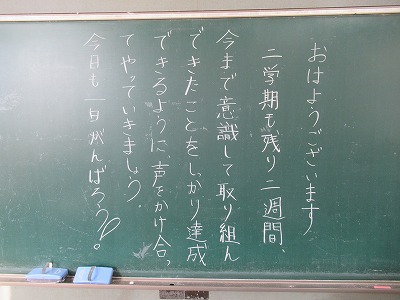 おはようございます
二学期も残り二週間、
今まで意識して取り組ん
できたことをしっかり達成
できるように、声をかけ合っ
てやっていきましょう。
今日も一日がんばろう。